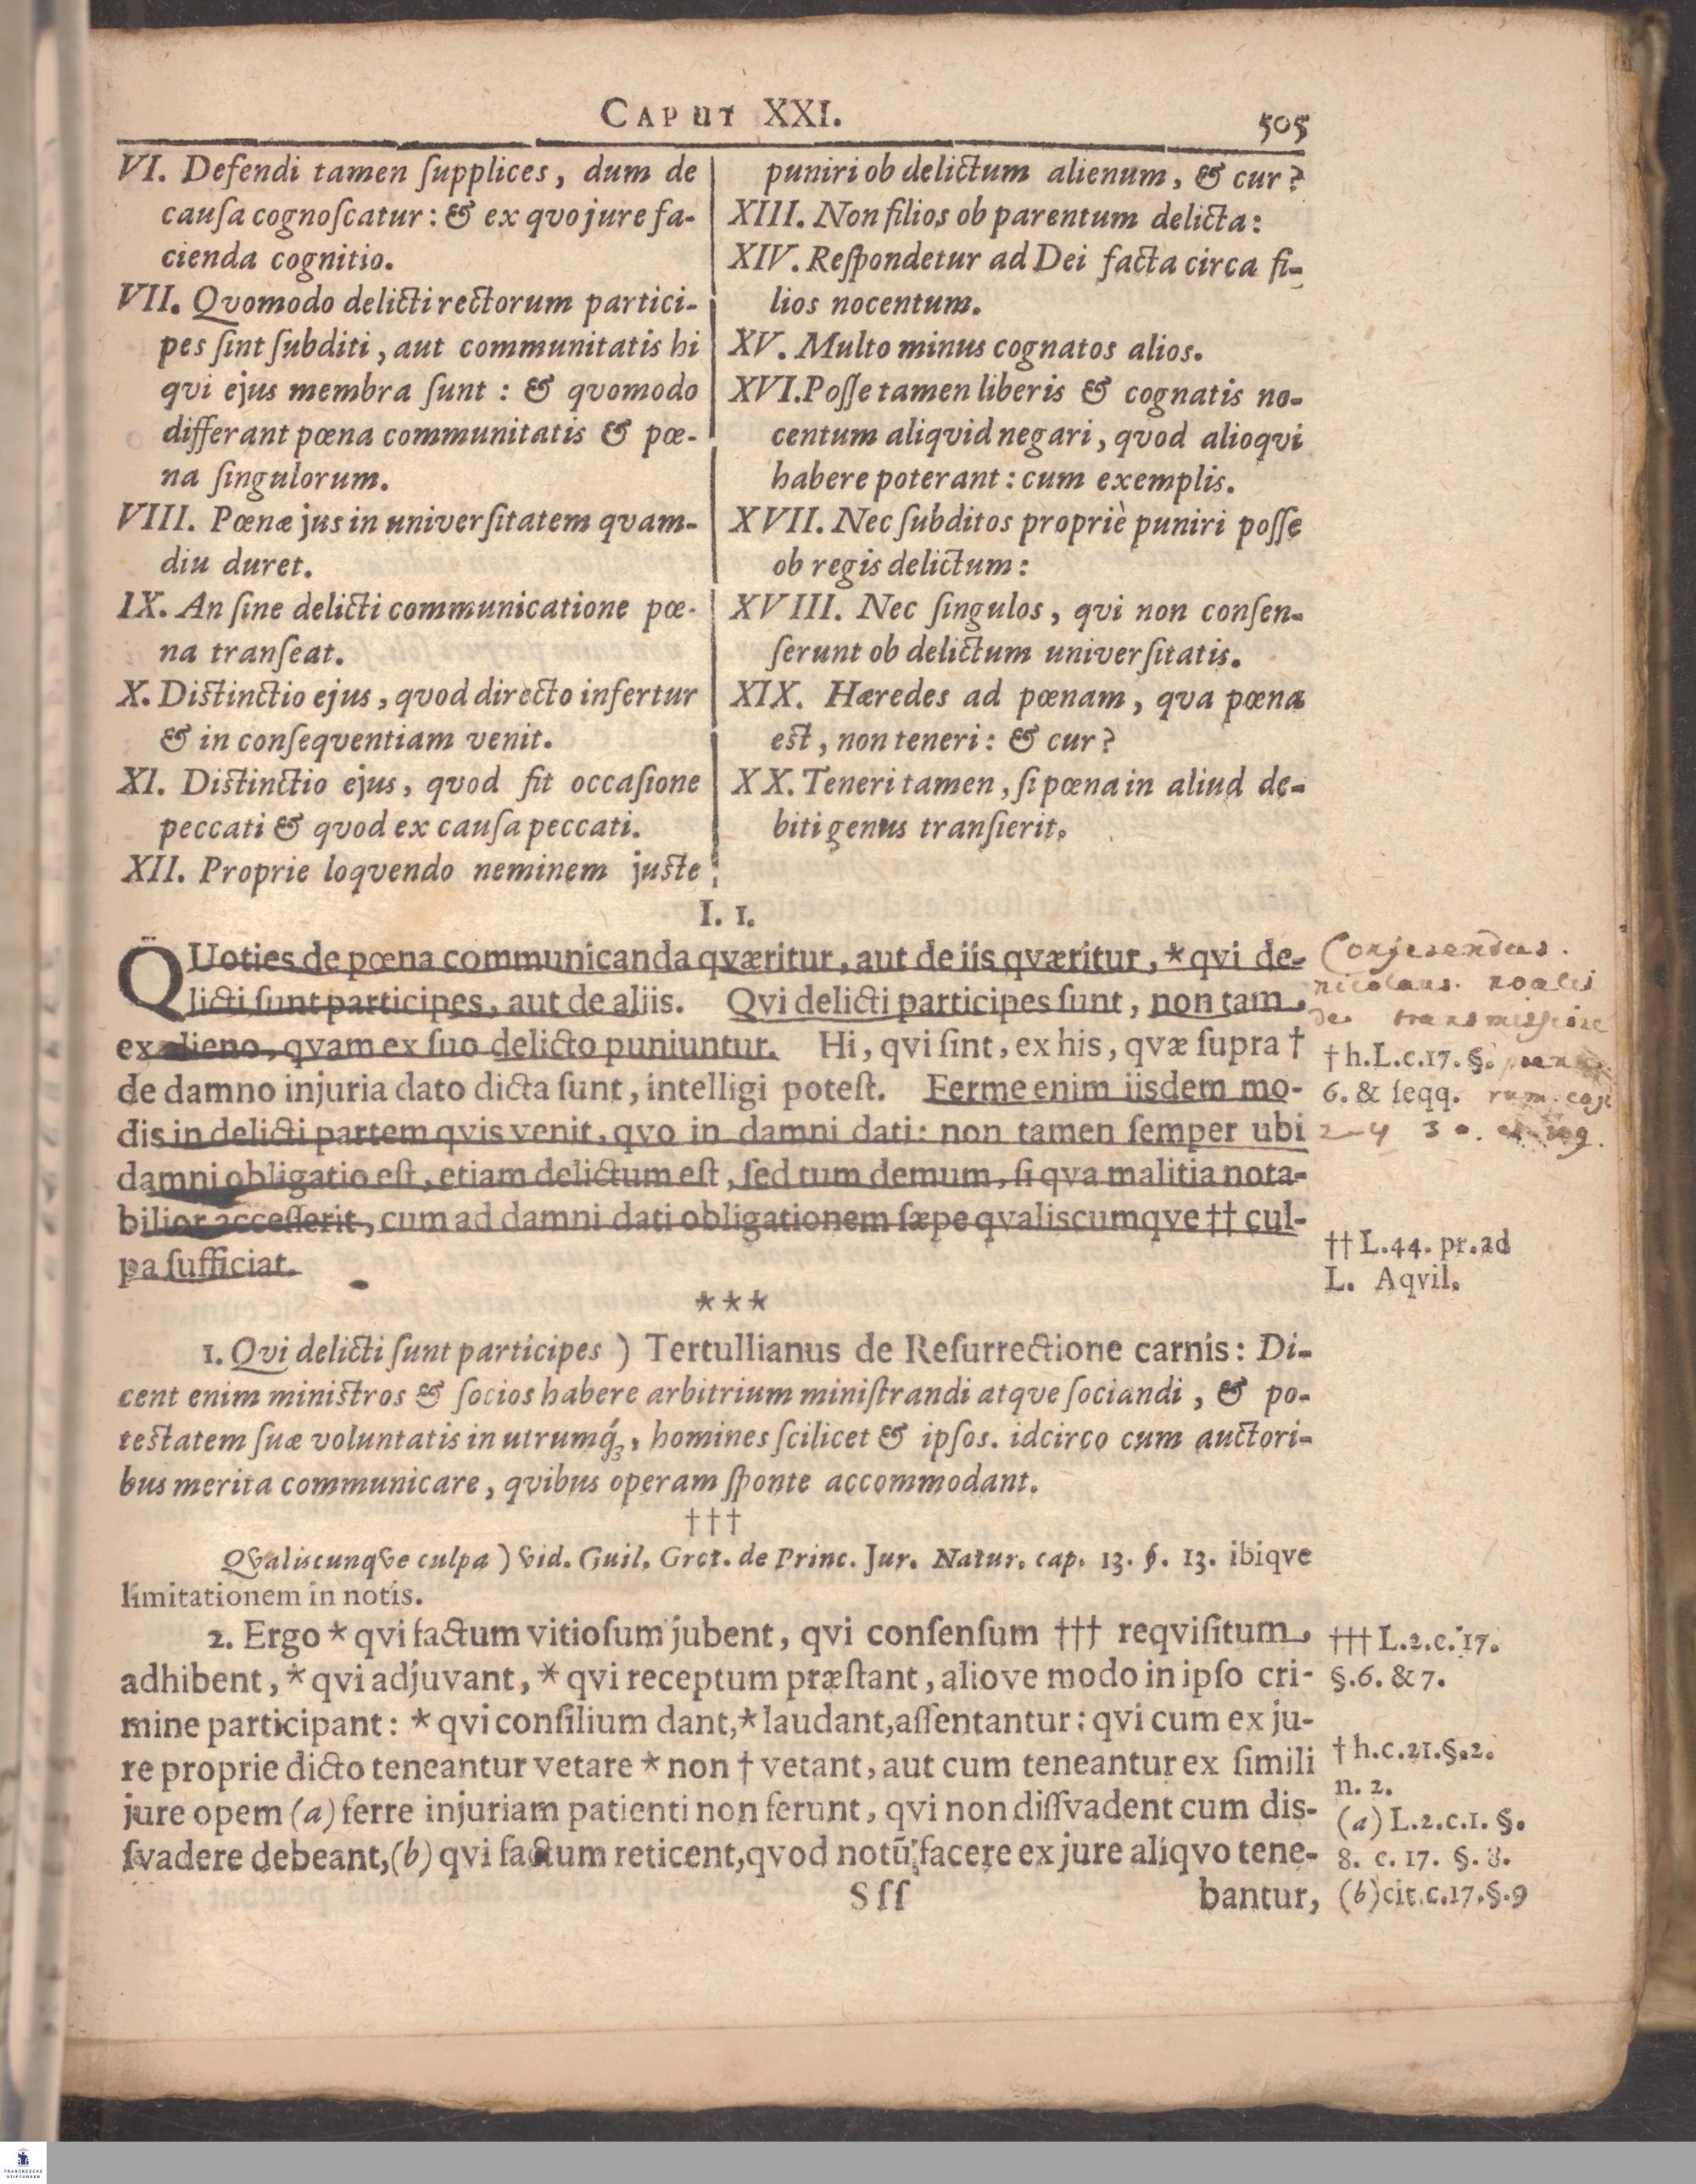 CAPUT XXI.
505
VI. Defendi tamen ſupplices, dum de
cauſa cognoſcatur: & ex qvo jure fa-
cienda cognitio.
VII. Qvomodo delicti rectorum partici-
pes ſint ſubditi, aut communitatis hi
qvi ejus membra ſunt : & qvomodo
differant pœna communitatis & pœ-
na ſingulorum.
VIII. Pœnæ jus in univerſitatem qvam-
diu duret.
IX. An ſine delicti communicatione pœ-
na tranſeat.
X. Distinctio ejus, qvod directo infertur
& in conſeqventiam venit.
XI. Distinctio ejus, qvod fit occaſione
peccati & qvod ex cauſa peccati.
XII. Proprie loqvendo neminem juste
puniri ob delictum alienum, & cur?
XIII. Non filios ob parentum delicta:
XIV. Reſpondetur ad Dei facta circa fi-
lios nocentum.
XV. Multo minus cognatos alios.
XVI. Poſſe tamen liberis & cognatis no-
centum aliqvid negari, qvod alioqvi
habere poterant: cum exemplis.
XVII. Nec ſubditos propriè puniri poſſe
ob regis delictum:
XVIII. Nec ſingulos, qvi non conſen-
ſerunt ob delictum univerſitatis.
XIX. Hæredes ad pœnam, qva pœna
est, non teneri: & cur?
XX. Teneri tamen, ſi pœna in aliud de-
biti genus tranſierit.
I. 1.
QUoties de pœna communicanda qværitur, aut de iis qværitur, * qvi de-
licti ſunt participes, aut de aliis. Qvi delicti participes ſunt, non tam
ex alieno, qvam ex ſuo delicto puniuntur. Hi, qvi ſint, ex his, qvæ ſupra †
de damno injuria dato dicta ſunt, intelligi poteſt. Ferme enim iisdem mo-
dis in delicti partem qvis venit, qvo in damni dati: non tamen ſemper ubi
damni obligatio eſt, etiam delictum eſt, ſed tum demum, ſi qva malitia nota-
bilior acceſſerit, cum ad damni dati obligationem ſæpe qvaliscumqve †† cul-
pa ſufficiat.
Conferendus.
nicolaus.
de transmissione
† h.L.c.17. §.
6. & ſeqq.
†† L.44. pr. ad
L. Aqvil.
***
1. Qvi delicti ſunt participes ) Tertullianus de Reſurrectione carnis: Di-
cent enim ministros & ſocios habere arbitrium miniſtrandi atqve ſociandi, & po-
testatem ſuæ voluntatis in utrumq́;, homines ſcilicet & ipſos. idcirco cum auctori-
bus merita communicare, qvibus operam ſponte accommodant.
†††
Qvaliscunqve culpa ) vid. Guil. Grot. de Princ. Jur. Natur. cap. 13. §. 13. ibiqve
limitationem in notis.
2. Ergo * qvi factum vitioſum jubent, qvi conſenſum ††† reqviſitum
adhibent, * qvi adjuvant, * qvi receptum præſtant, aliove modo in ipſo cri-
mine participant: * qvi conſilium dant,* laudant,aſſentantur: qvi cum ex ju-
re proprie dicto teneantur vetare * non † vetant, aut cum teneantur ex ſimili
jure opem (a) ferre injuriam patienti non ferunt, qvi non diſſvadent cum dis-
ſvadere debeant,(b) qvi factum reticent,qvod notū facere ex jure aliqvo tene-
Sſſ
bantur,
††† L.2.c.17.
§.6. & 7.
† h.c.21.§.2.
n. 2.
(a) L.2.c.1. §.
8. c. 17. §. 8.
(b) cit.c.17.§.9
FRANCKESCHE
STIFTUNGEN